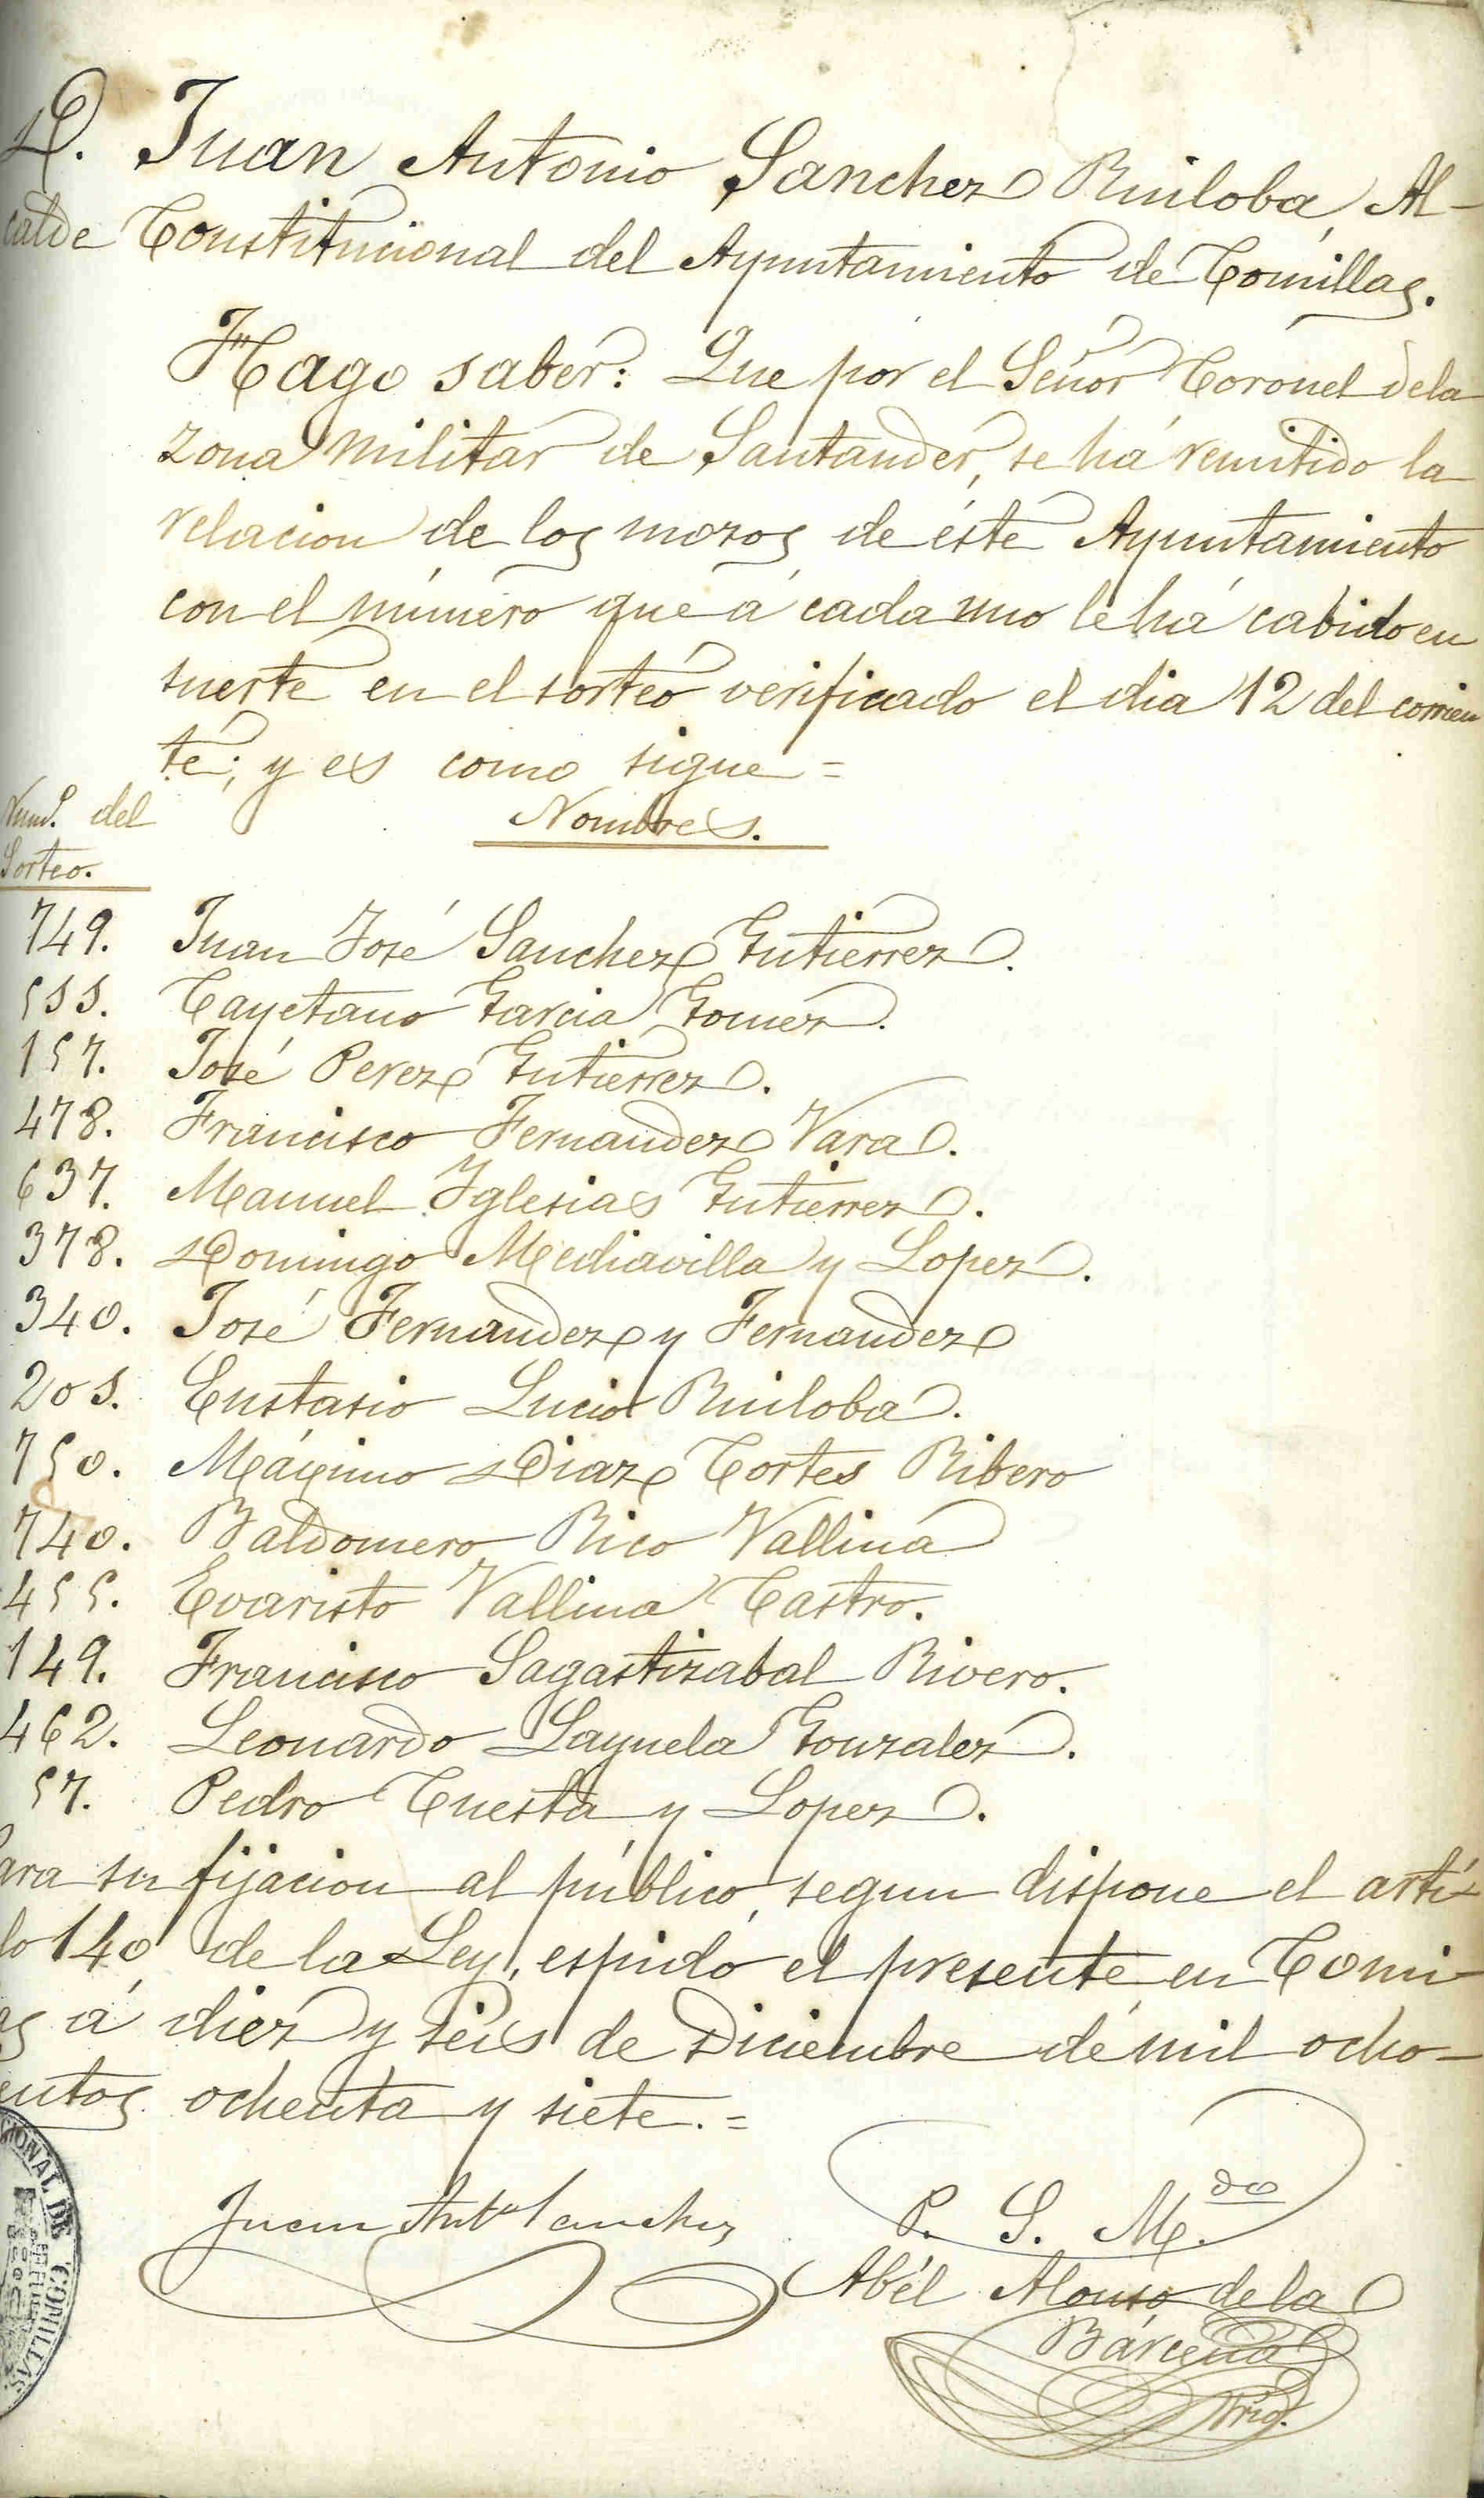 D. Juan Antonio Sanchez Ruiloba, Al-
calde Constitucional del Ayuntamiento de Comillas.
Hago saber: Que por el Señor Coronel de la
zona militar de Santander, se há remitido la
relacion de los mozos de éste Ayuntamiento
con el número que á cada uno le há cabido en
suerte en el sorteo verificado el dia 12 del corrien
te; y es como sigue=
Numº. del
Sorteo.
Nombres.
749. Juan José Sanchez Gutierrez.
555. Cayetano Garcia Gomez.
157. José Perez Gutierrez.
478. Francisco Fernandez Vara.
637. Manuel Iglesias Gutierrez.
378. Domingo Mediavilla y Lopez.
340. José Fernandez y Fernandez
205. Eustasio Lucio Ruiloba.
750. Máximo Diaz Cortes Ribero
740. Baldomero Rico Vallina
455. Evaristo Vallina Castro.
149. Francisco Sagastizabal Rivero.
462. Leonardo Layuela Gonzalez.
57. Pedro Cuesta y Lopez.
ara su fijacion al público, segun dispone el artí-
lo 140 de la Ley, espido el presente en Comi-
as á diez y seis de Diciembre de mil ocho-
entos ochenta y siete.=
Juan Antº Sanchez
P. S. M.do
Abél Alonso de la
Bárcena
SIONAL DE COMILLAS